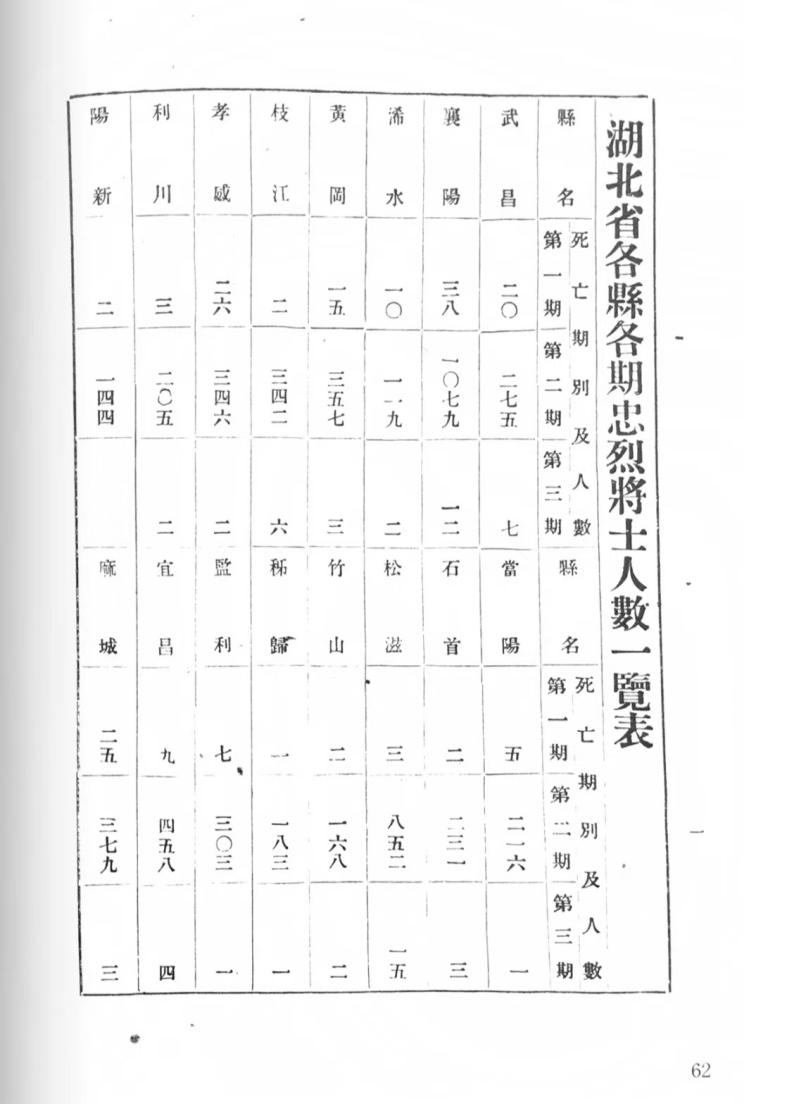 湖北省各縣各期忠烈將士人數一覽表
縣名 死亡期別及人數 第一期 第二期 第三期 縣名 死亡期別及人數 第一期 第二期 第三期
武昌 二〇 二七五 七 當陽 五 二一六 一
襄陽 三八 一〇七九 一二 石首 二 二三一 三
浠水 一〇 一一九 二 松滋 三 八五二 一五
黃岡 一五 三五七 三 竹山 二 一六八 二
枝江 二 三四二 六 秭歸 一 一八三 一
孝感 二六 三四六 二 監利 七 三〇三 一
利川 三 二〇五 二 宜昌 九 四五八 四
陽新 二 一四四 麻城 二五 三七九 三
一
62